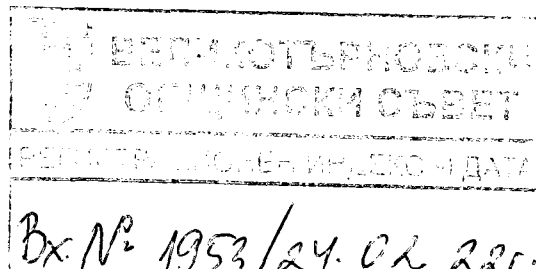 ВЕЛИКОТЪРНОВСКИ
ОБЩИНСКИ СЪВЕТ
РЕГИСТРАЦИОНЕН ИНДЕКС И ДАТА
Вх. № 1953/24.02.22г.